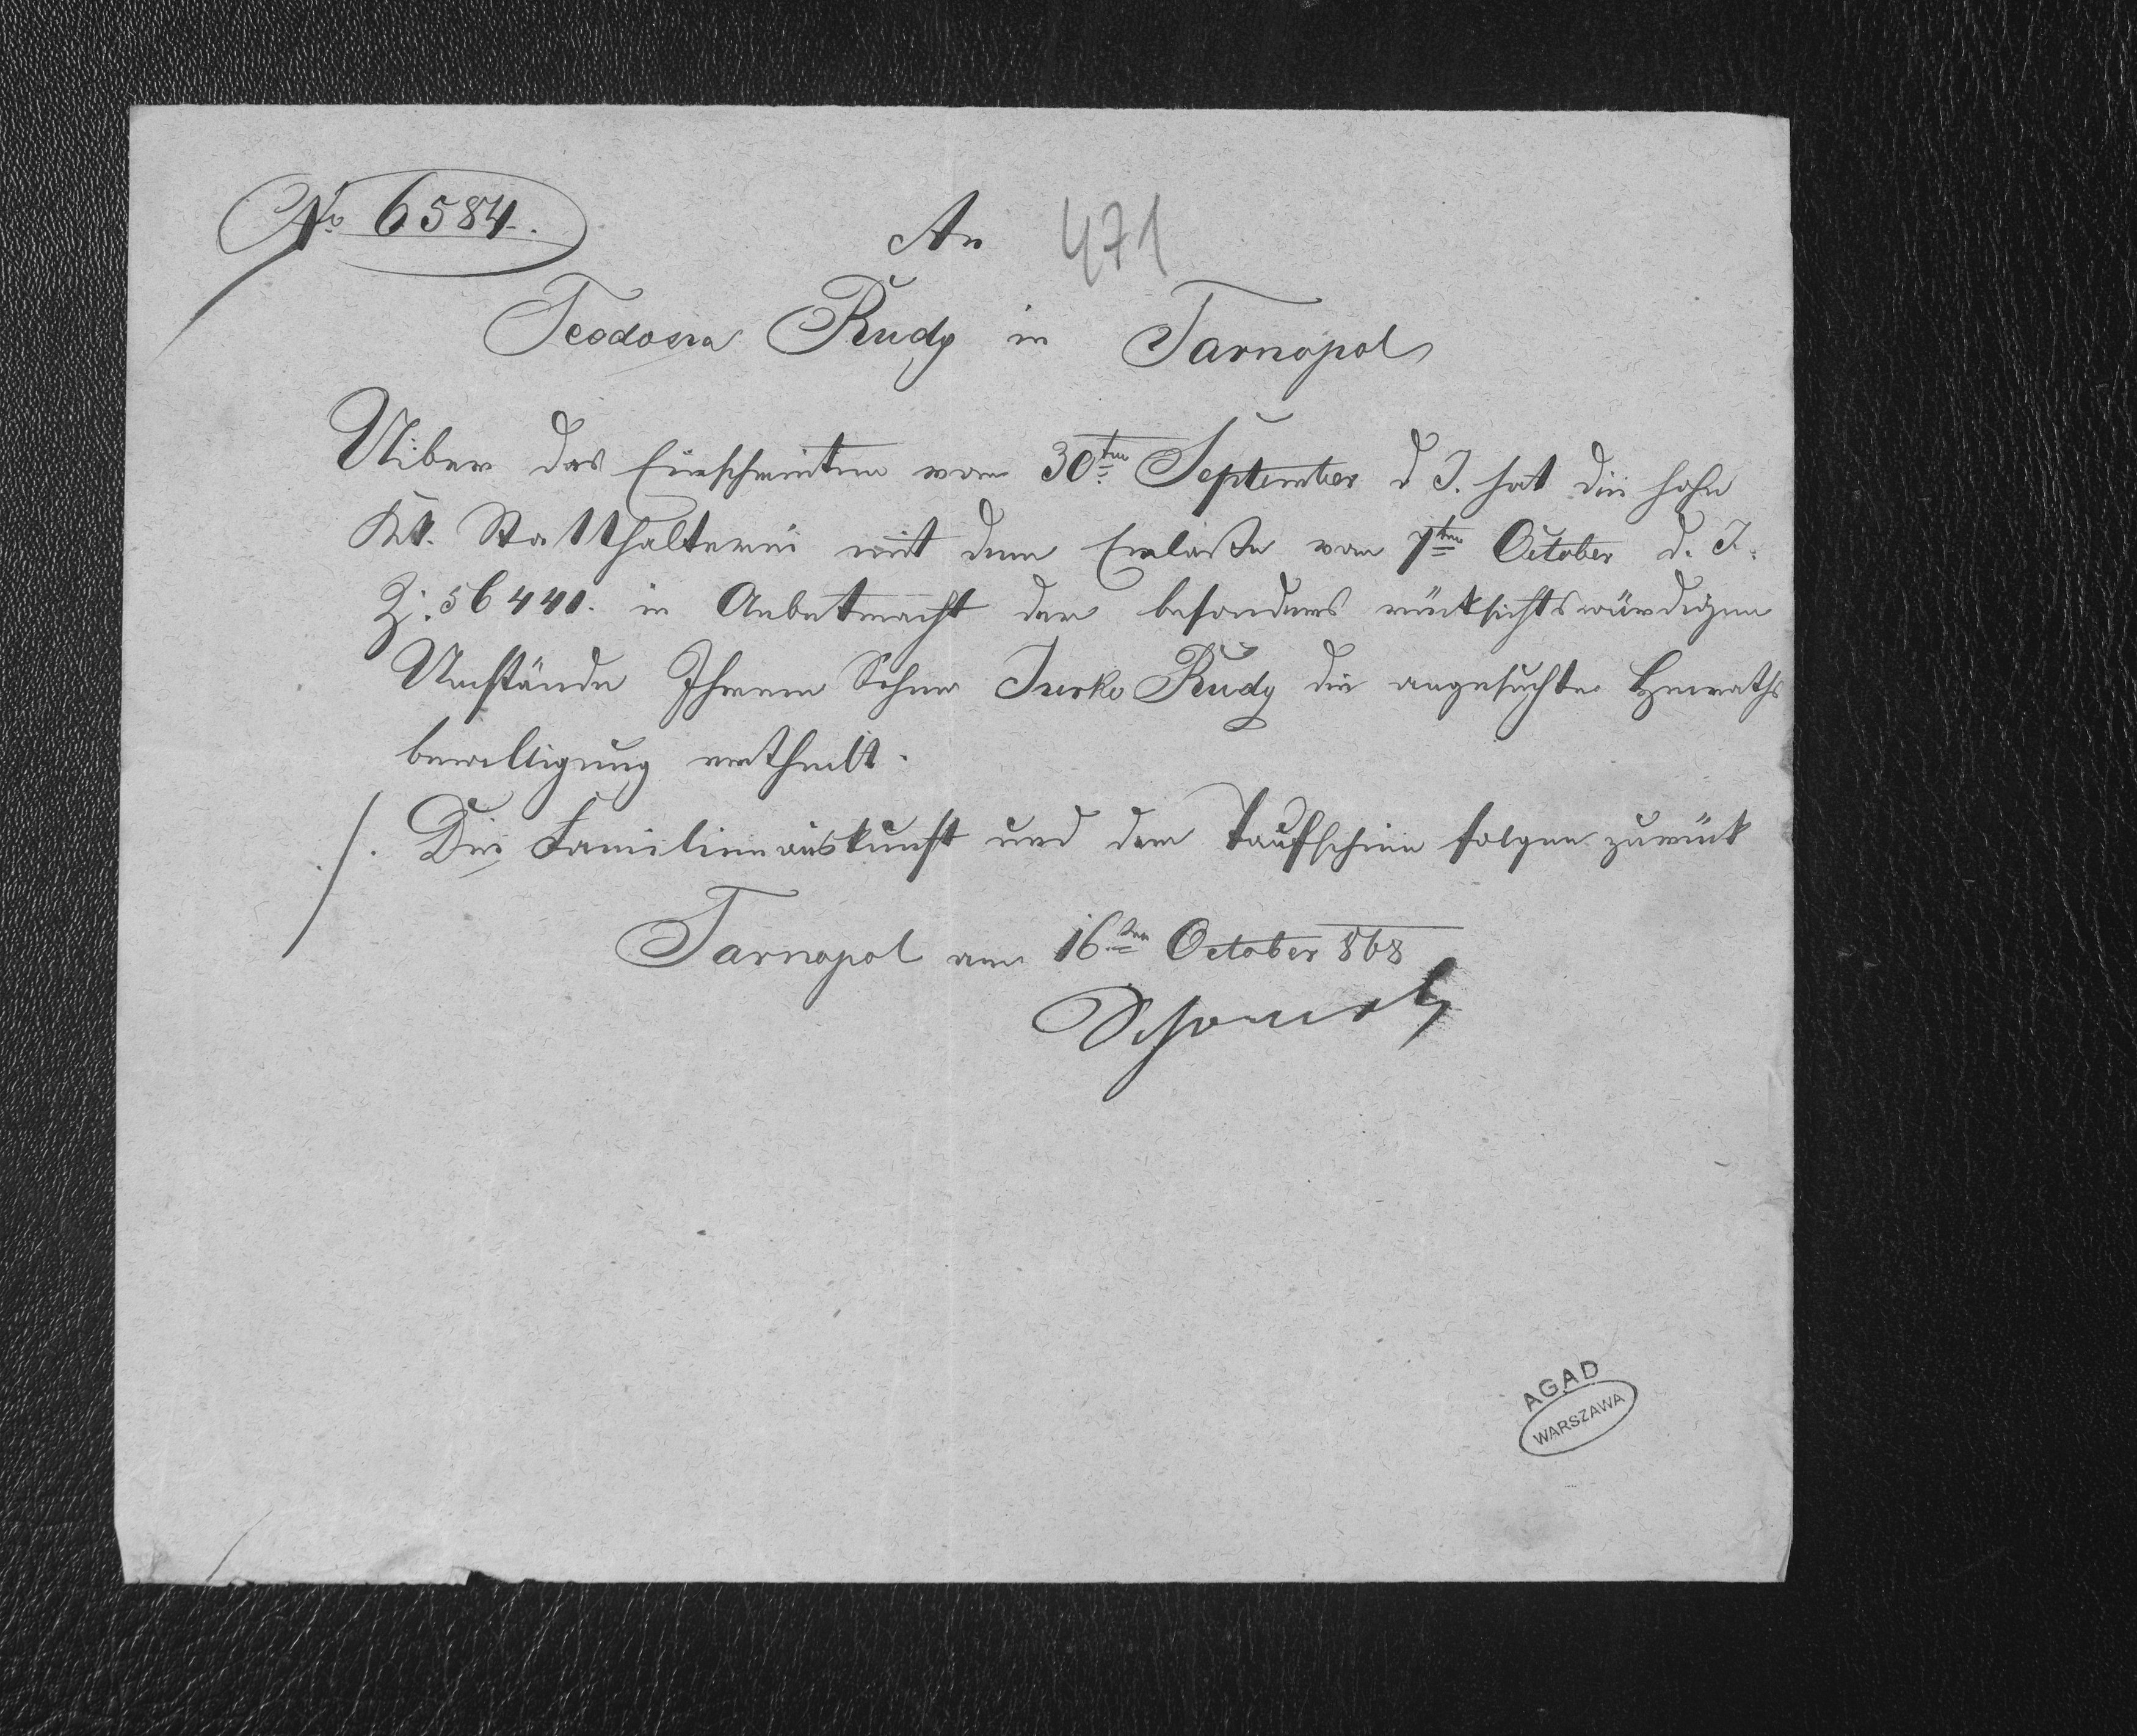 No 6584.
An 471
Teodosia Rudy in Tarnopol
Uiber das Einschreiten vom 30ten September d J. hat die hohe
KK. Statthalterei mit dem Erlaße vom 7ten October d. J.
Z: 56440. in Anbetracht der besonders rücksichtswürdigen
Umstände Ihrem Sohne Jurko Rudy die angesuchte Heiraths
bewilligung ertheilt.
./. Die Familienauskunft und der Taufschein folgen zurück
Tarnopol am 16ten October 868
AGAD
WARSZAWA